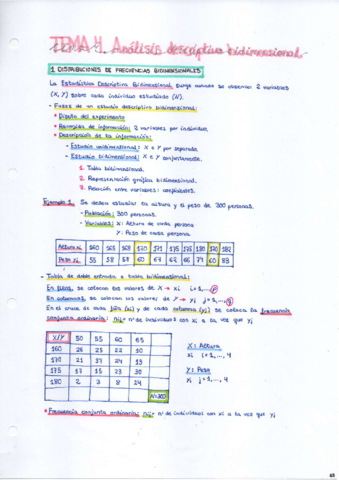 TEMA 4. Análisis descriptivo bidimensional.
1. DISTRIBUCIONES DE FRECUENCIAS BIDIMENSIONALES
La Estadística Descriptiva Bidimensional surge cuando se observan 2 variables
(X, Y) sobre cada individuo estudiado (N).
- Fases de un estudio descriptivo bidimensional:
* Diseño del experimento
* Recogida de información: 2 variables por individuo.
* Descripción de la información:
- Estudio unidimensional: X e Y por separado
- Estudio bidimensional: X e Y conjuntamente.
1. Tabla bidimensional.
2. Representación gráfica bidimensional.
3. Relación entre variables: coeficientes.
Ejemplo 1. Se desea estudiar la altura y el peso de 300 personas.
- Población: 300 personas.
- Variables: X: Altura de cada persona
Y: Peso de cada persona
Altura xi 160 165 168 170 171 175 178 180 170 182
Peso yi 55 58 58 60 67 62 66 71 60 83
- Tabla de doble entrada o tabla bidimensional:
En filas, se colocan los valores de X → xi i=1,...,p
En columnas, se colocan los valores de Y → yj j=1,...,q
En el cruce de cada fila (xi) y de cada columna (yj) se coloca la frecuencia
conjunta ordinaria: nij = nº de individuos con xi a la vez que yj
X/Y 50 55 60 65
160 26 25 22 10
170 21 37 24 13
175 17 15 23 30
180 2 3 8 24
N=300
X: Altura
xi i=1,..., 4
Y: Peso
yj j=1,..., 4
* Frecuencia conjunta ordinaria: nij = nº de individuos con xi a la vez que yj